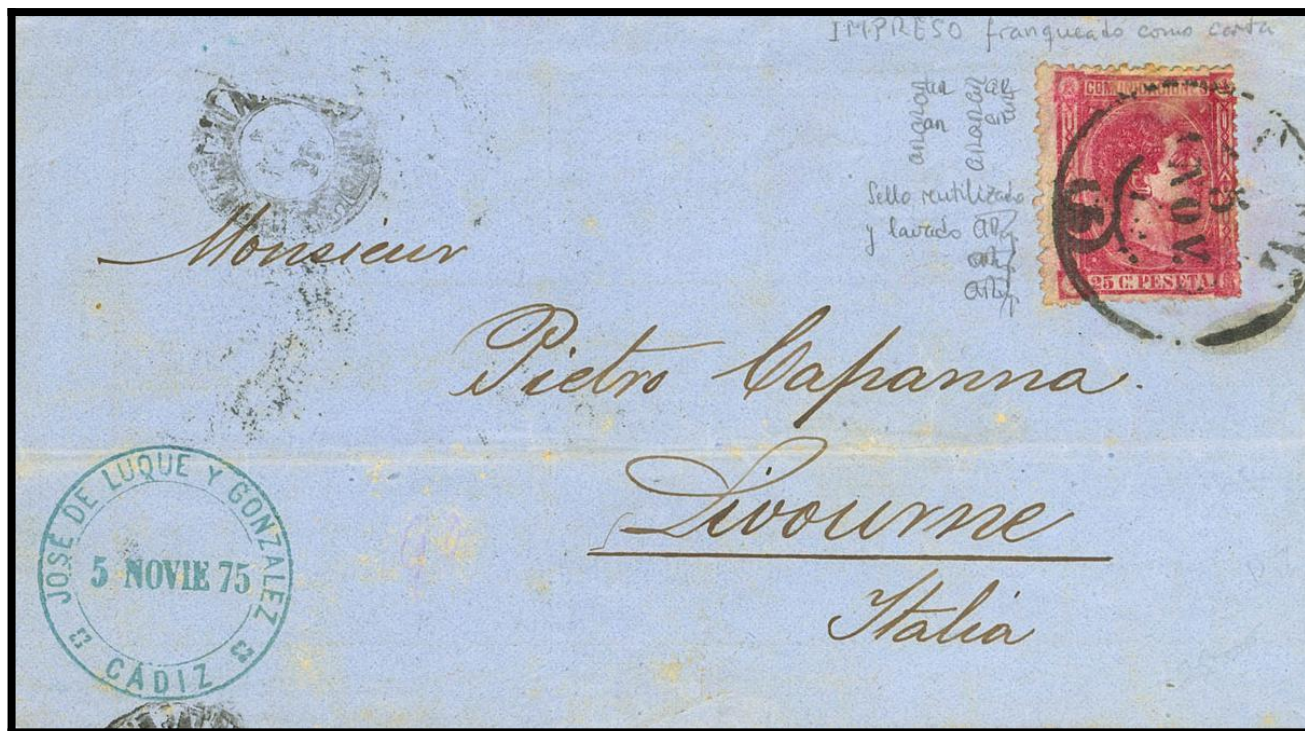 IMPRESO franqueado como carta
Sello reutilizado
y lavado
COMUNICACIONES
25 C. PESETA
5
NOV
Monsieur
Pietro Capanna.
Livourne
Italia
JOSÉ DE LUQUE Y GONZALEZ
5 NOVIE 75
CÁDIZ